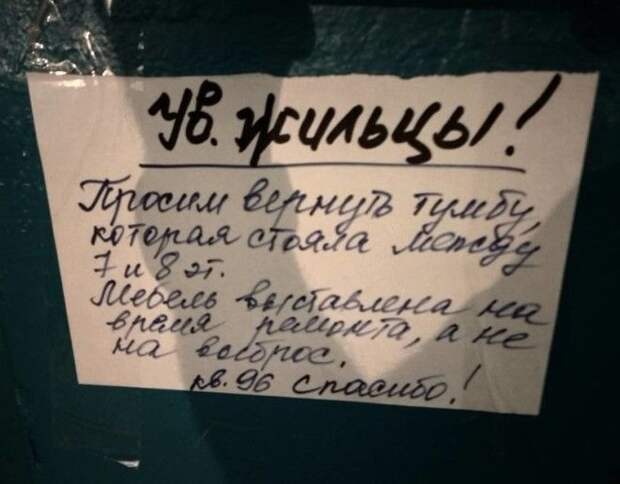 Ув. жильцы!
Просим вернуть тумбу,
которая стояла между
7 и 8 эт.
Мебель выставлена на
время ремонта, а не
на выброс.
кв. 96 Спасибо!